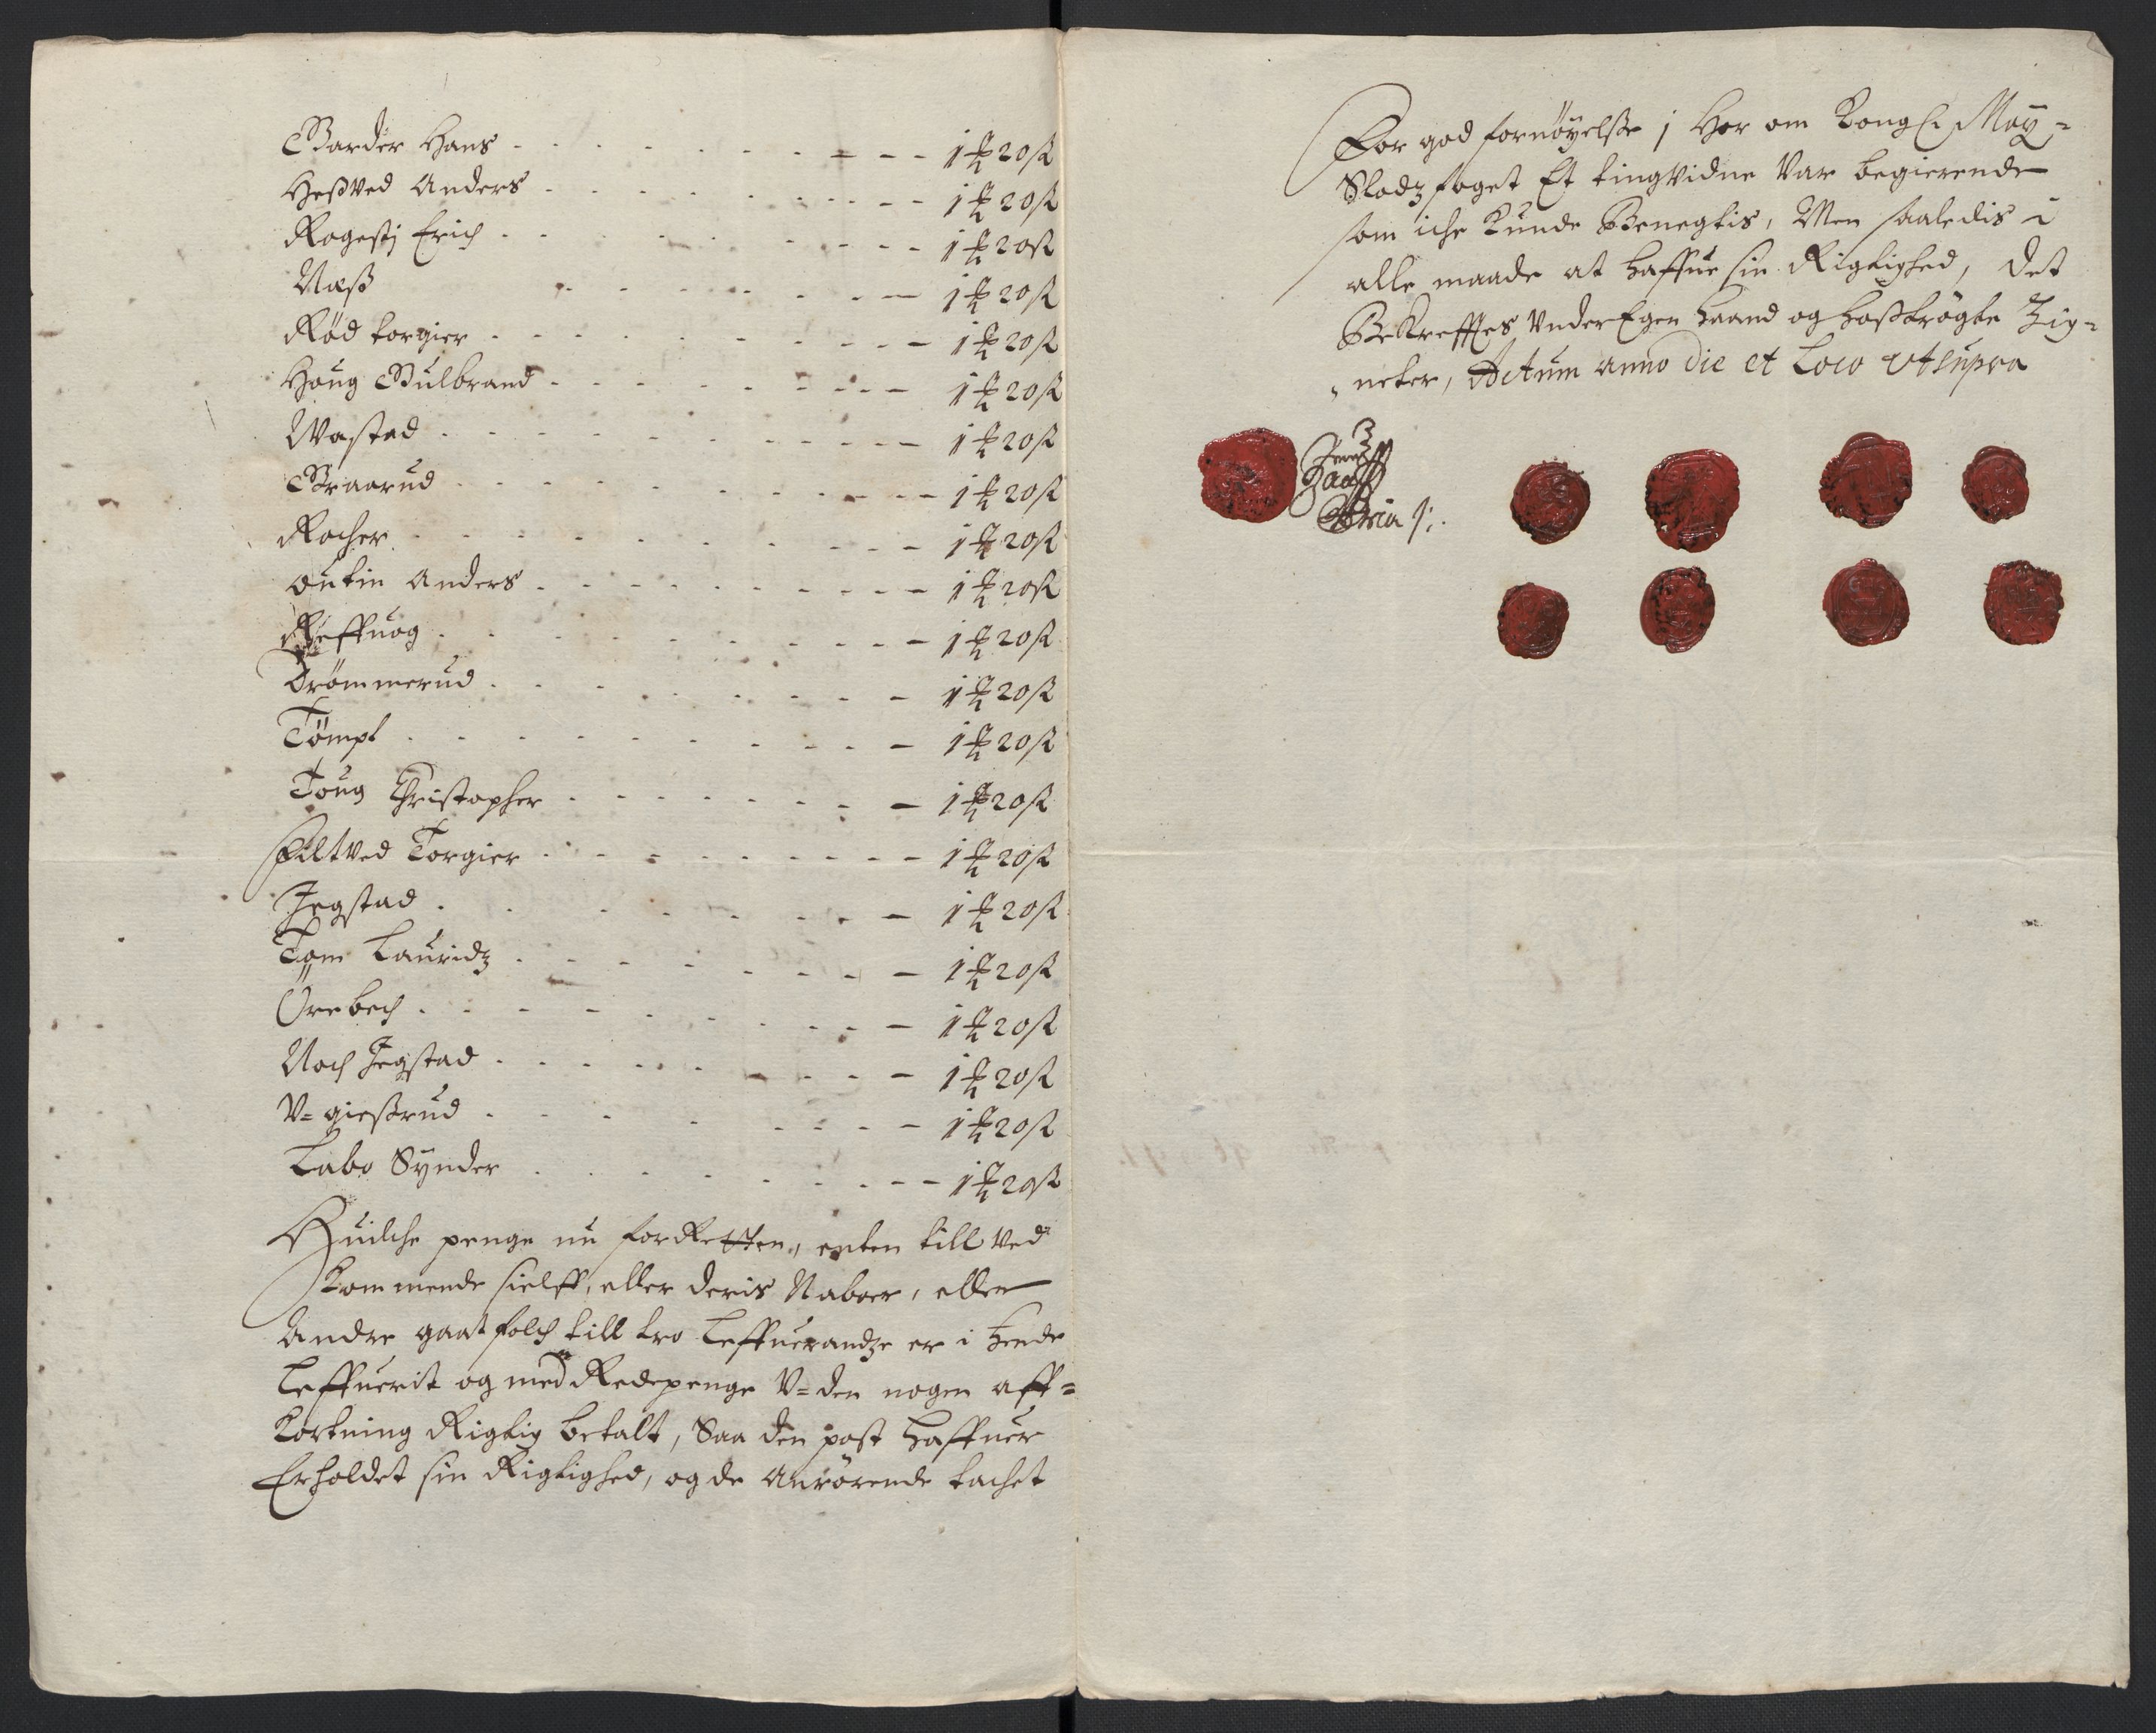 Garder Hans - - - 1 ort 20 ß
Heßved Anders - - - 1 ort 20 ß
Rogestj Erich - - - 1 ort 20 ß
Næß - - - 1 ort 20 ß
Rød torgier - - - 1 ort 20 ß
Houg Gulbrand - - - 1 ort 20 ß
Wastad - - - 1 ort 20 ß
Graarud - - - 1 ort 20 ß
Racher - - - 1 ort 20 ß
outin Anders - - - 1 ort 20 ß
Reffuog - - - 1 ort 20 ß
Drømmerud - - - 1 ort 20 ß
Tømpt - - - 1 ort 20 ß
Toug Christopher - - - 1 ort 20 ß
Filtved Torgier - - - 1 ort 20 ß
Jegstad - - - 1 ort 20 ß
Tom Lauridz - - - 1 ort 20 ß
Örebech - - - 1 ort 20 ß
Noch Jegstad - - - 1 ort 20 ß
V= gießrud - - - 1 ort 20 ß
Labo Synder - - - 1 ort 20 ß
Huilche penge nu for Retten, enten till ved
Kommende sielff, eller deris Naboer, eller
Andre gaat folch till tro Leffuerandze er i hende
Leffuerit og med Rede penge V=den nogen aff=
Kortning Rigtig betalt, Saa den post haffuer
Erholdet sin Rigtighed, og de Anrørende tachet
For god fornøyelße j Hor om Kongl: May=
Slodz foget Et tingvidne var begierende
som iche Kunde Benegtis, Men saaledis i
alle maade at haffue sin Rigtighed, det
Bekrefftes under Egen haand og hoßtrøgte Zig=
neter, Actum anno die et Loco ut supra